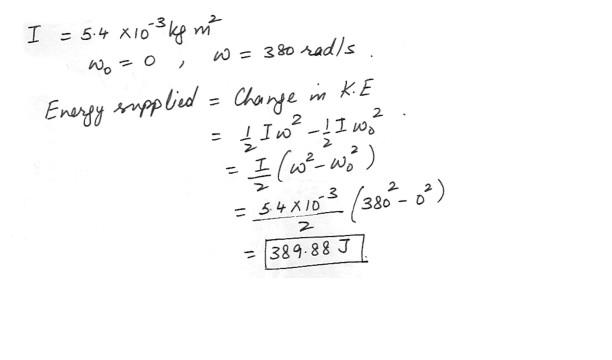 I = 5.4 ×10⁻³ kg m²
ω₀ = 0 , ω = 380 rad/s .
Energy supplied = Change in K.E
= 1/2 Iω² - 1/2 Iω₀² .
= I/2 (ω² - ω₀²)
= 5.4 × 10⁻³/2 (380² - 0²)
= 389.88 J